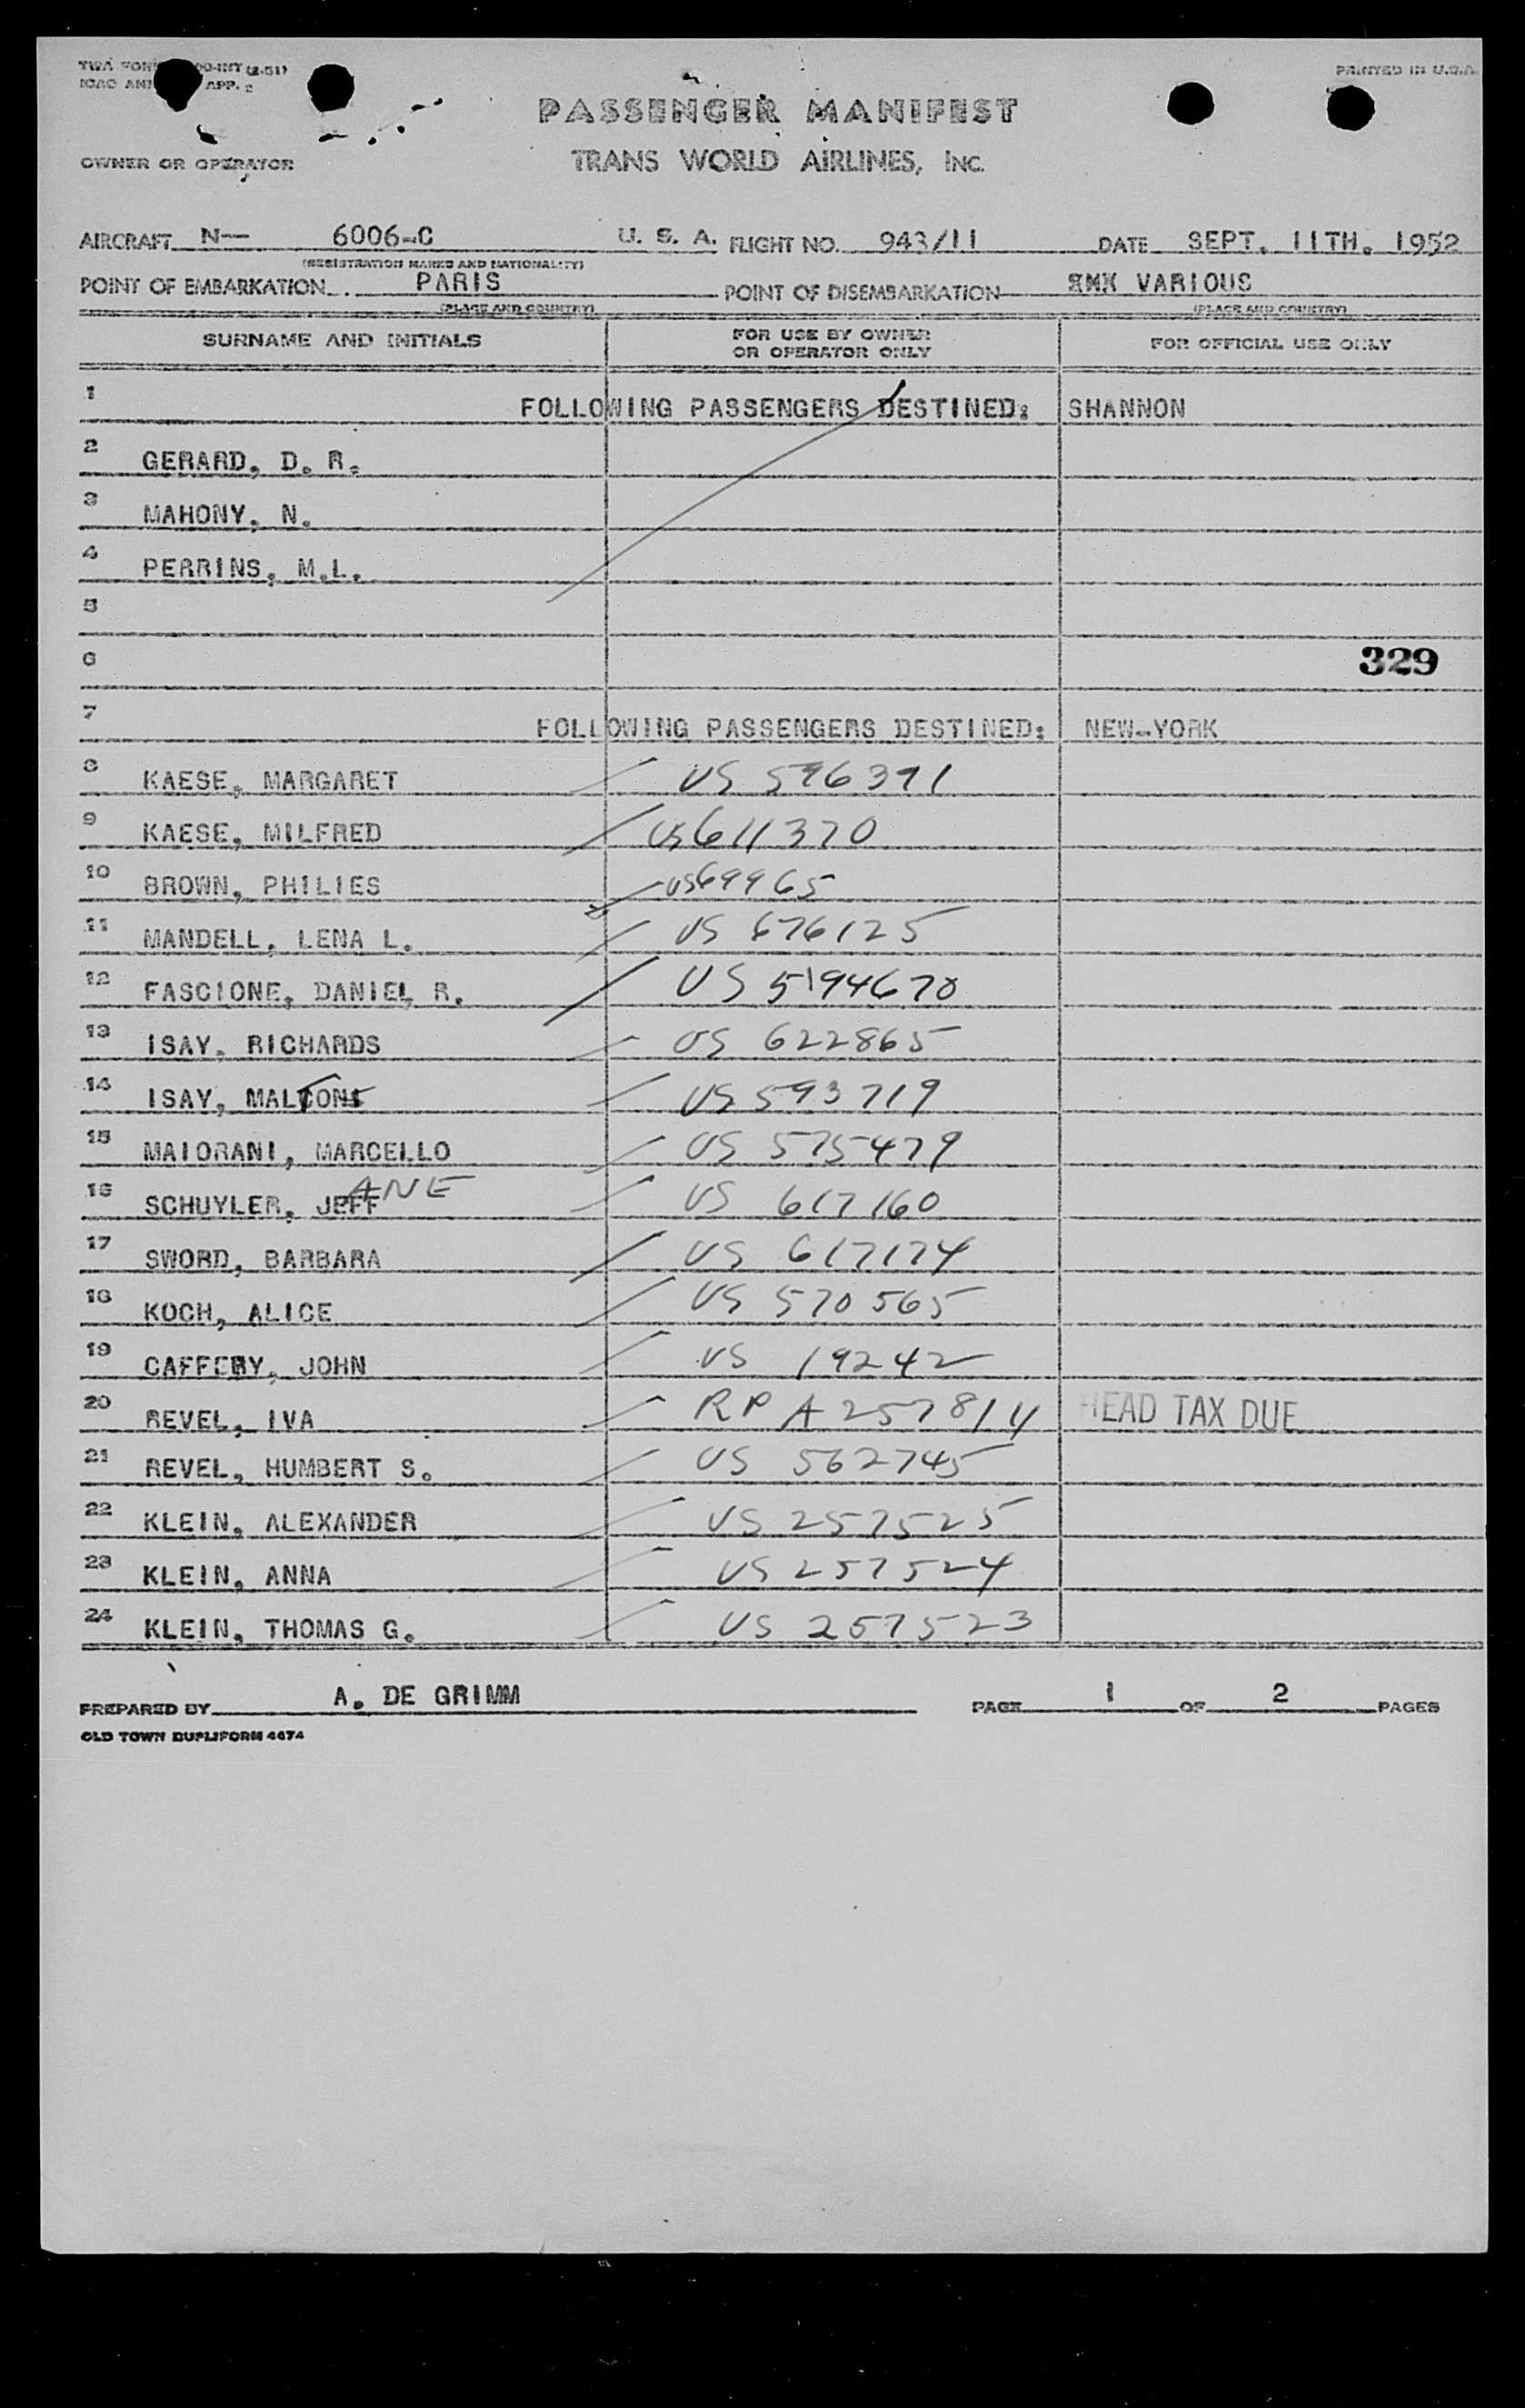 TWA FORM 90-INT (2-51)
ICAO ANN APP. 2
PRINTED IN U.S.A.
PASSENGER MANIFEST
OWNER OR OPERATOR
TRANS WORLD AIRLINES, INC.
AIRCRAFT N— 6006-C U. S. A. FLIGHT NO. 943/11 DATE SEPT. 11TH. 1952
(REGISTRATION MARKS AND NATIONALITY)
POINT OF EMBARKATION PARIS POINT OF DISEMBARKATION VARIOUS
(PLACE AND COUNTRY) (PLACE AND COUNTRY)
SURNAME AND INITIALS FOR USE BY OWNER OR OPERATOR ONLY FOR OFFICIAL USE ONLY
1 FOLLOWING PASSENGERS DESTINED: SHANNON
2 GERARD, D. R.
3 MAHONY, N.
4 PERRINS, M.L.
5
6 329
7 FOLLOWING PASSENGERS DESTINED: NEW-YORK
8 KAESE, MARGARET US 596391
9 KAESE, MILFRED US 611370
10 BROWN, PHILIES US 69965
11 MANDELL, LENA L. US 676125
12 FASCIONE, DANIEL R. US 5194670
13 ISAY, RICHARDS US 622865
14 ISAY, US 593719
15 MAIORANI, MARCELLO US 575479
16 SCHUYLER, JEFF ANE US 617160
17 SWORD, BARBARA US 617174
18 KOCH, ALICE US 570565
19 CAFFERY, JOHN US 19242
20 REVEL, IVA RP A257814 HEAD TAX DUE
21 REVEL, HUMBERT S. US 562745
22 KLEIN, ALEXANDER US 257525
23 KLEIN, ANNA US 257524
24 KLEIN, THOMAS G. US 257523
PREPARED BY A. DE GRIMM PAGE 1 OF 2 PAGES
OLD TOWN DUPLIFORM 4674